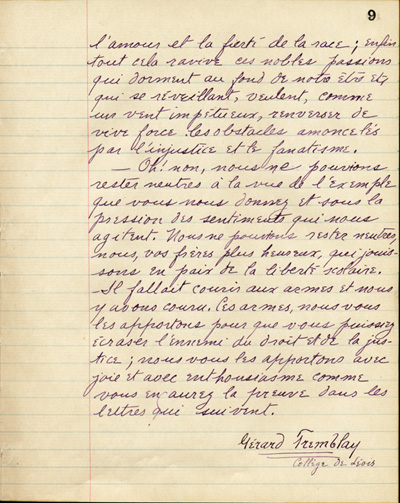 9
l'amour et la fierté de la race ; enfin
tout cela ravive ces nobles passions
qui dorment au fond de notre être et
qui se réveillant, veulent, comme
un vent impétueux, renverser de
vive force les obstacles amoncelés
par l'injustice et le fanatisme.
— Oh! non, nous ne pouvions
rester neutres à la vue de l'exemple
que vous nous donnez et sous la
pression des sentiments qui nous
agitent. Nous ne pouvons rester neutres,
nous, vos frères plus heureux, qui jouis-
sons en paix de la liberté scolaire.
- Il fallait courir aux armes et nous
y avons couru. Ces armes, nous vous
les apportons pour que vous puissiez
écraser l'ennemi du droit et de la jus-
tice ; nous vous les apportons avec
joie et avec enthousiasme comme
vous en aurez la preuve dans les
lettres qui suivent.
Gérard Tremblay
Collège de Lévis